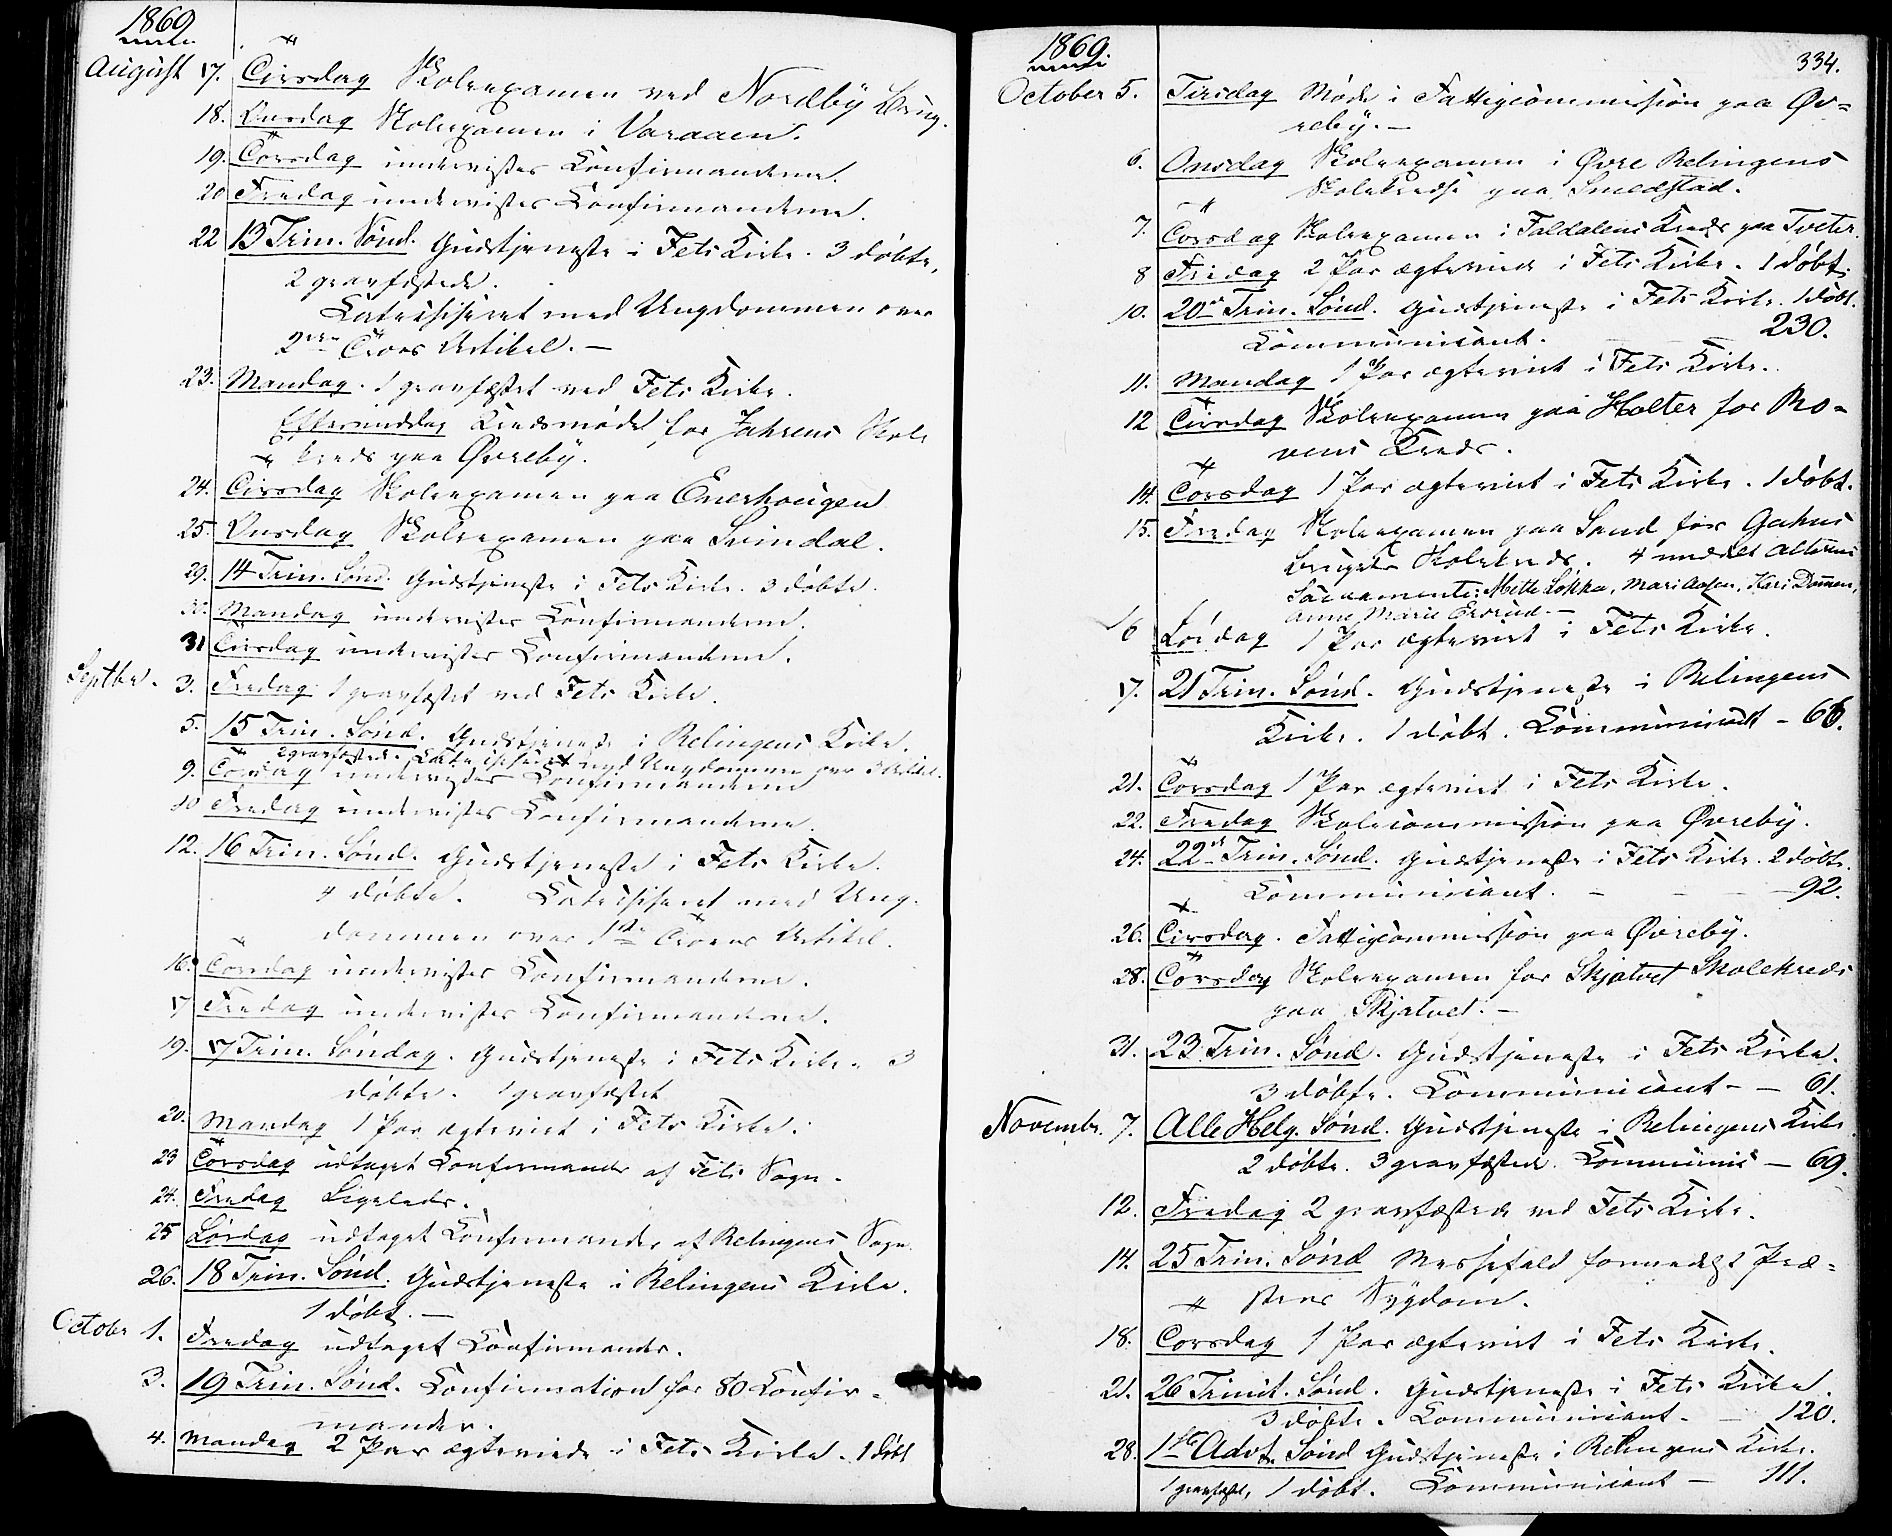 1869
August 17. Tirsdag Skoleexamen ved Nordby Brug.
18. Onsdag Skoleexamen i Varaaen.
19. Torsdag undervistes Konfirmanderne.
20 Fredag undervistes Konfirmanderne.
22 13 Trin. Sønd. Gudstjeneste i Fets Kirke. 3 døbte,
2 gravfæstede.
Katechiseret med Ungdommen over
2den Troes Artikel. —
23. Mandag. 1 gravfæstet ved Fets Kirke.
Eftermiddag Kredsmøde for Jahrens Skole
kreds paa Øvreby.
24. Tirsdag Skoleexamen paa Enerhougen
25. Onsdag Skoleexamen paa Svindal.
29. 14 Trin. Sønd. Gudstjeneste i Fets Kirke. 3 døbte.
30. Mandag undervistes Konfirmanderne.
31 Tirsdag undervistes Konfirmanderne.
Septbr. 3. Fredag 1 gravfæstet ved Fets Kirke.
5. 15 Trin. Sønd. Gudstjeneste i Relingens Kirke.
2 gravfæstede. Katechiseret med Ungdommen over 3 Artikel.
9. Torsdag undervistes Konfirmanderne
10 Fredag undervistes Konfirmanderne.
12. 16 Trin. Sønd. Gudstjeneste i Fets Kirke.
4 døbte. Katechiseret med Ung-
dommen over 1ste Troens Artikel.
16. Torsdag undervistes Konfirmanderne.
17 Fredag undervistes Konfirmanderne.
19. 17 Trin. Søndag. Gudstjeneste i Fets Kirke. 3
døbte. 1 gravfæstet
20. Mandag 1 Par ægteviet i Fets Kirke.
23 Torsdag udtaget Konfirmander af Fets Sogn.
24. Fredag Ligeledes.
25 Lørdag udtaget Konfirmander af Relingens Sogn.
26. 18 Trin. Sønd. Gudstjeneste i Relingens Kirke.
1 døbt. —
October 1. Fredag udtaget Konfirmander.
3. 19 Trin. Sønd. Confirmation for 80 Konfir-
mander.
4. Mandag 2 Par ægteviede i Fets Kirke. 1 døbt
1869.
334.
October 5. Tirsdag Møde i Fattigcommission paa Øv-
reby. —
6. Onsdag Skoleexamen i Øvre Relingens
Skolekreds paa Smedstad.
7. Torsdag Skoleexamen i Faldalens Kreds paa Tveter.
8 Fredag 2 Par ægteviede i Fets Kirke. 1 døbt.
10. 20de Trin. Sønd. Gudstjeneste i Fets Kirke. 1 døbt.
Communicant. 230.
11. Mandag 1 Par ægteviet i Fets Kirke.
12 Tirsdag Skoleexamen paa Holter for Ro-
vens Kreds.
14. Torsdag 1 Par ægteviet i Fets Kirke. 1 døbt.
15. Fredag Skoleexamen paa Sand for Gahns
Brugets Skolekreds. 4 meddelt Alterens
Sacramente: Mette Løkka, Mari Aasen, Kari Dammen,
Anne Marie Evsrud. —
16 Lørdag 1 Par ægteviet i Fets Kirke.
17. 21 Trin. Sønd. Gudstjeneste i Relingens
Kirke. 1 døbt. Communicant — 66.
21. Torsdag 1 Par ægteviet i Fets Kirke.
22. Fredag Skolecommission paa Øvreby.
24. 22de Trin. Sønd. Gudstjeneste i Fets Kirke. 2 døbte.
Communicant. — — — 92.
26. Tirsdag. Fattigcommission paa Øvreby.
28. Torsdag Skoleexamen for Skjatvet Skolekreds
paa Skjatvet. —
31. 23 Trin. Sønd. Gudstjeneste i Fets Kirke.
3 døbte. Communicant — — 61.
Novembr. 7. Alle Helg. Sønd. Gudstjeneste i Relingens Kirke
2 døbte. 3 gravfæstede. Communic — 69.
12. Fredag 2 gravfæstede ved Fets Kirke.
14. 25 Trin. Sønd Messefald formedelst Præ-
stens Sygdom.
18. Torsdag 1 Par ægteviet i Fets Kirke.
21. 26 Trinit. Sønd. Gudstjeneste i Fets Kirke.
3 døbte. Communicant. — 120.
28. 1ste Advt. Sønd Gudstjeneste i Relingens Kirke.
1 gravfæstet, 1 døbt. Communicant — 111.